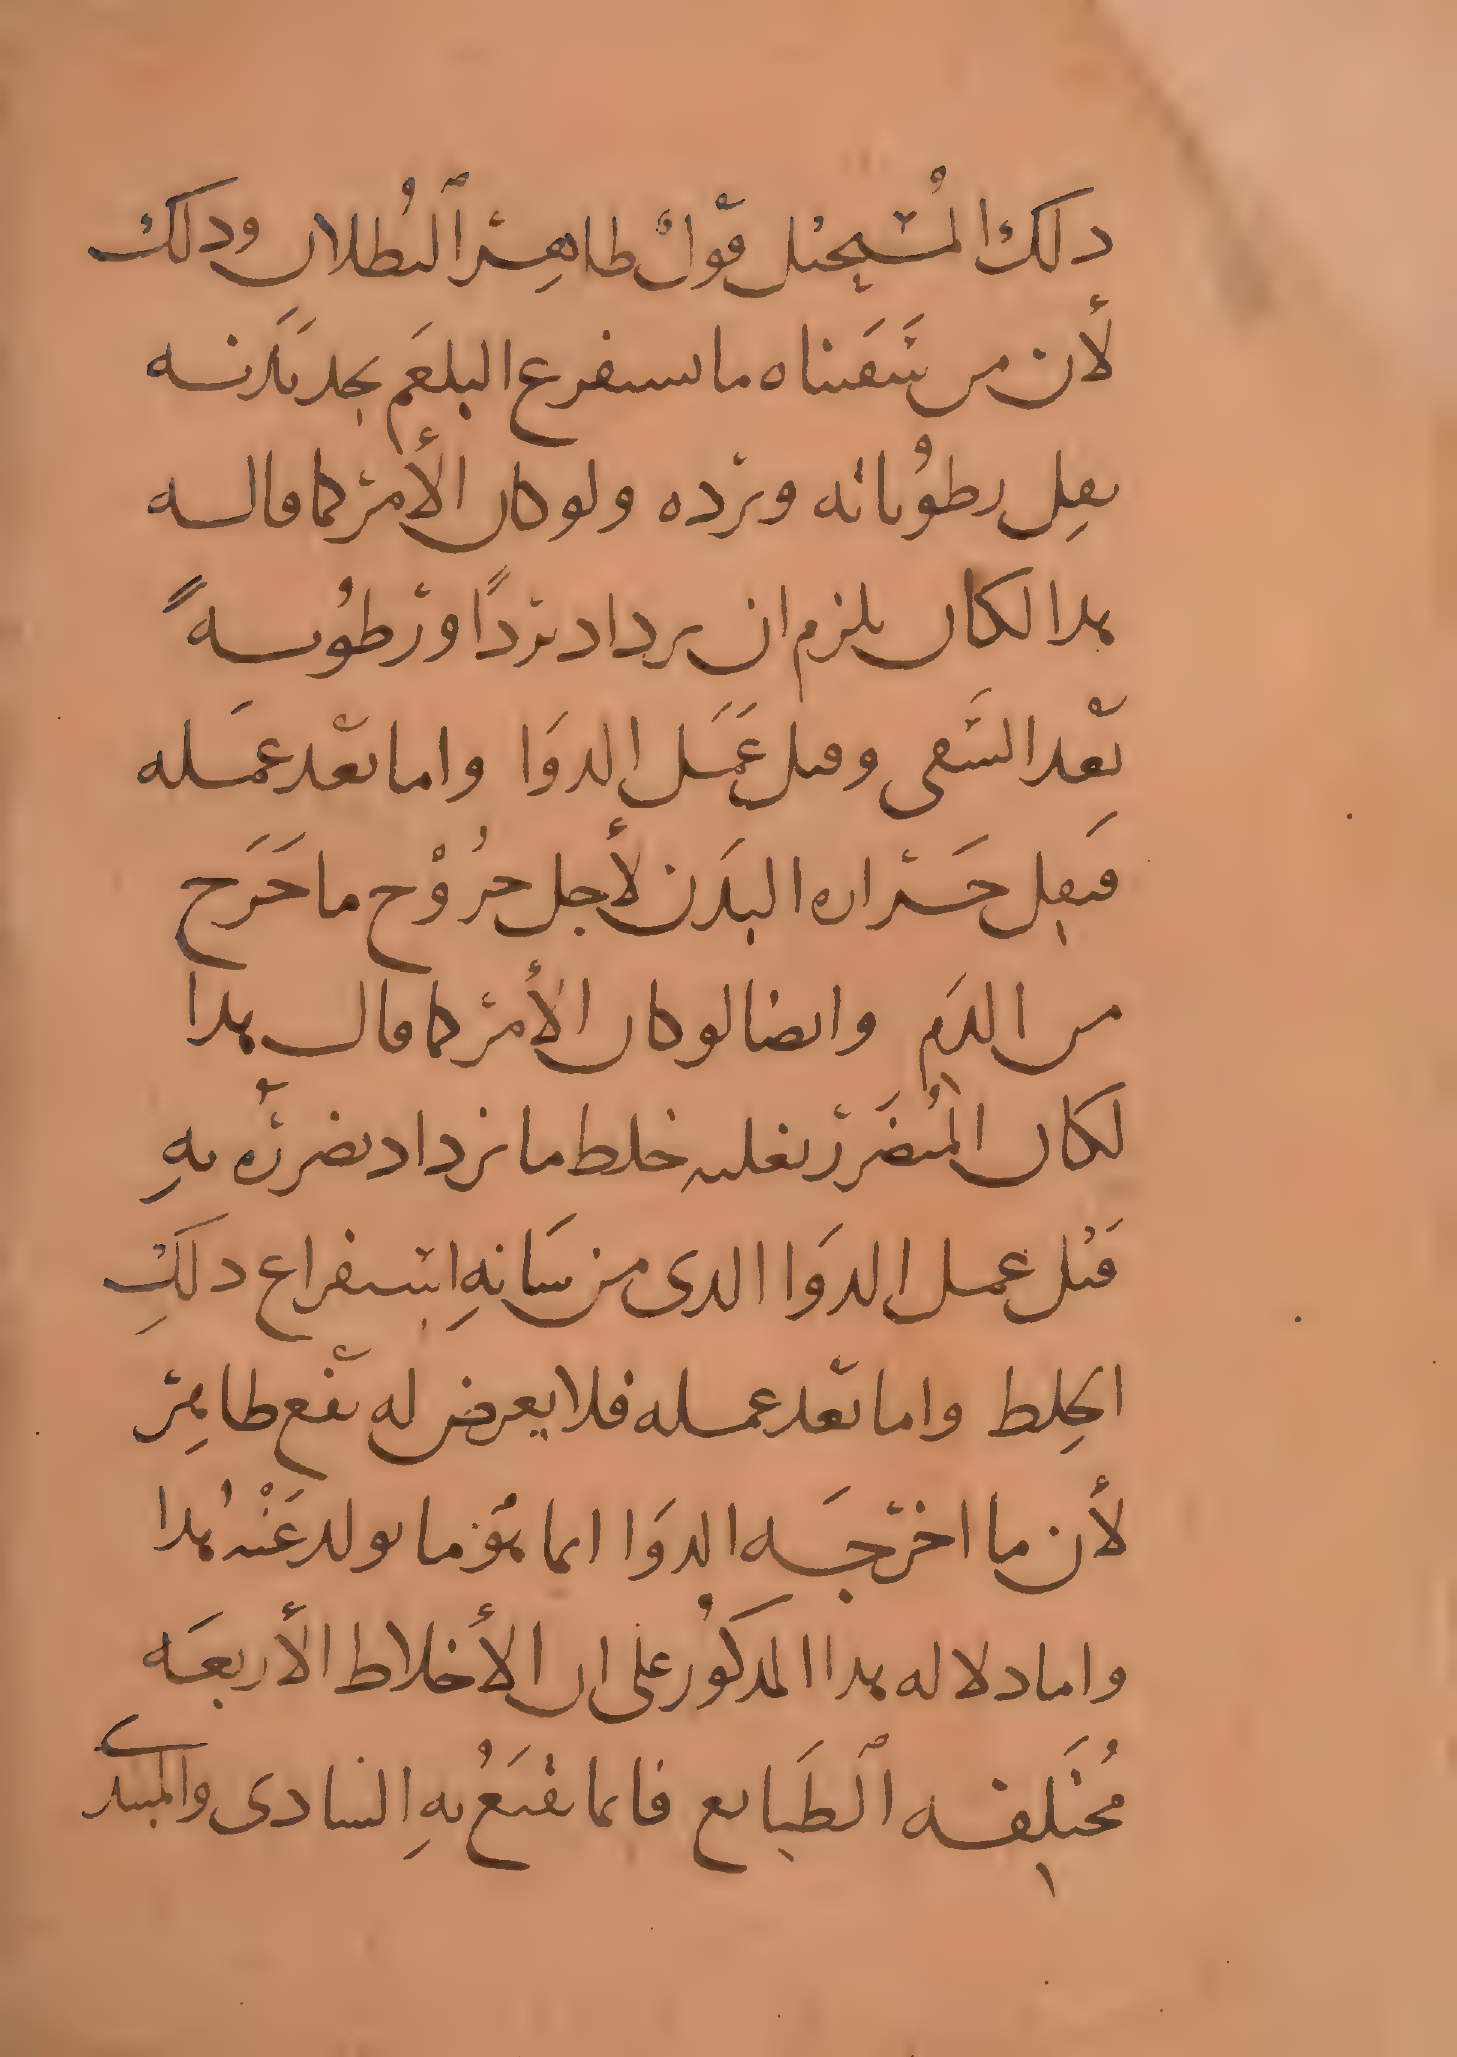 ذلك المُسْتحيل قوْلٌ ظاهِرُ ٱلبُطلان وذلك
لأن من سَقَيناه ما يستفرغ البلغَم نجد بَدَنه
يقِل رطوُباته وبرْده ولو كان الأمرْ كما قاله
هذا لكان يلزم ان يزداد برْدًا ورُطوُبةً
بعْد السَقى وقبل عَمَل الدوَا واما بعْد عمَله
فيقِل حَرْاره البدَن لأجل خرُوْج ما خَرَج
من الدَم وايضا لو كان الأمرْ كما قال هذا
لكان المُتضَررْ بغلبه خلط ما يزداد تضررْه بهِ
قبْل عمل الدوَا الذى من شانهِ استفراغ ذلكِ
الخِلط واما بعْد عمله فلا يعرض له نفْع ظاهِرْ
لأن ما اخرْجَه الدوَا انما هوُ ما تولد عَنْهُ هذا
واما دلاله هذا المذكوُر على ان الأخلاط الأربعَه
مُختَلِفه ٱلطَبايع فانما يقنَعُ بهِ الشادى والمبتدى